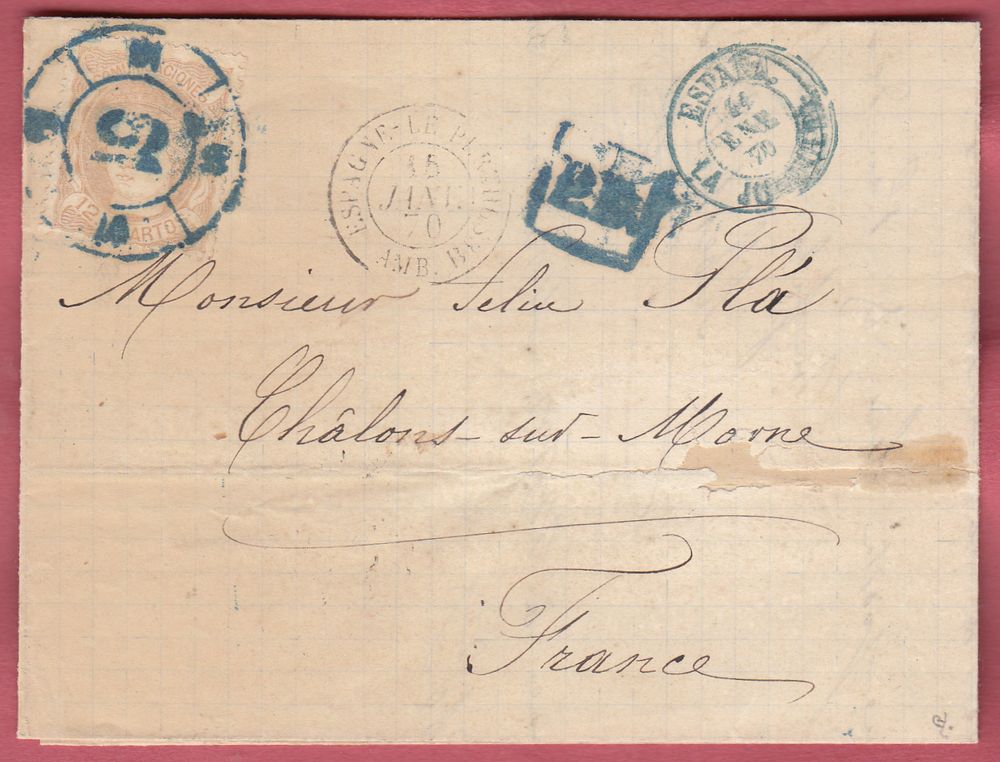 COMUNICACIONES
12 CUARTOS
ESPAGNE - LE PERTHUS
15
JANV.
70
AMB.
P.D.
ESPAÑA
14
ENE
70
Monsieur Feliu Plá
Châlons-sur-Marne
France